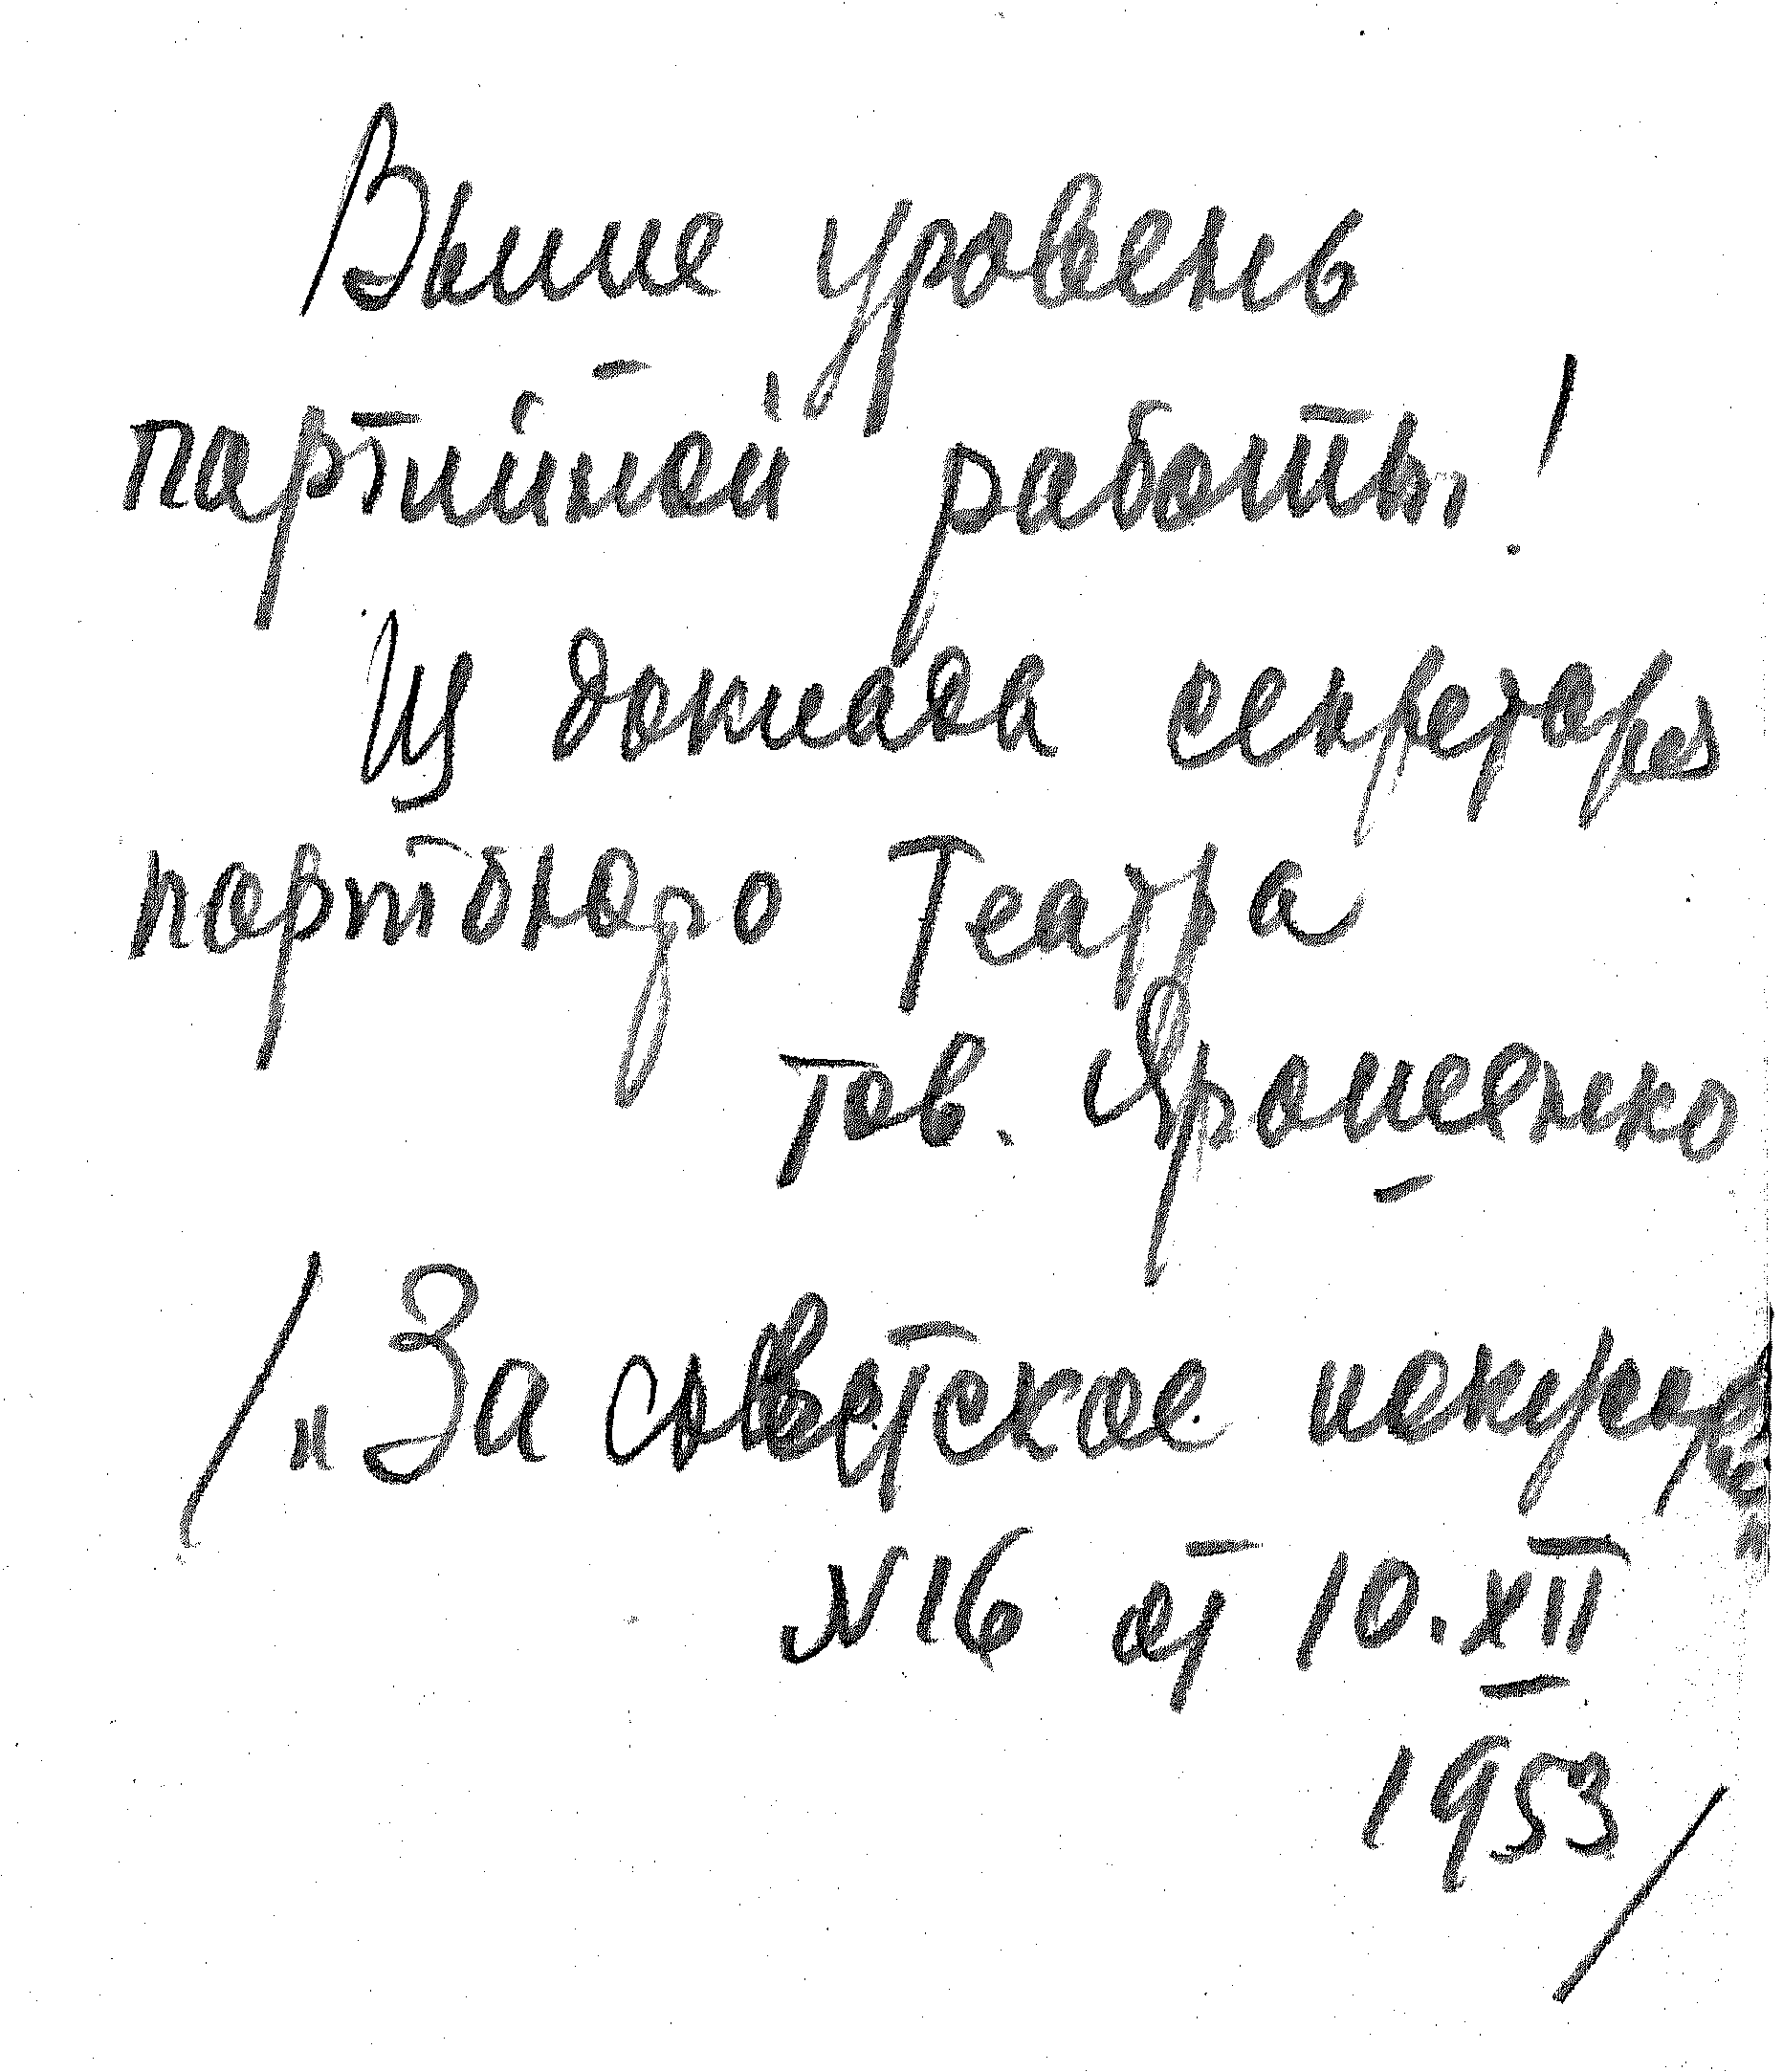 Выше уровень
партийной работы!
Из доклада секретаря
партбюро Театра
тов. Ярошенко
/„За советское искусство"
N16 от 10.XII
1953/